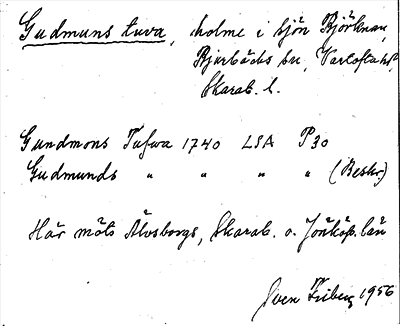 Gudmuns tuva, holme i sjön Björknen,
Bjurbäcks sn, Vartofta hd
Skarab. l.
Gundmons Tufwa 1740 LSA P30
Gudmunds " " " " (Beskr)
Här möts Älvsborgs, Skarab. o. Jönköp. län
Sven Friberg 1956